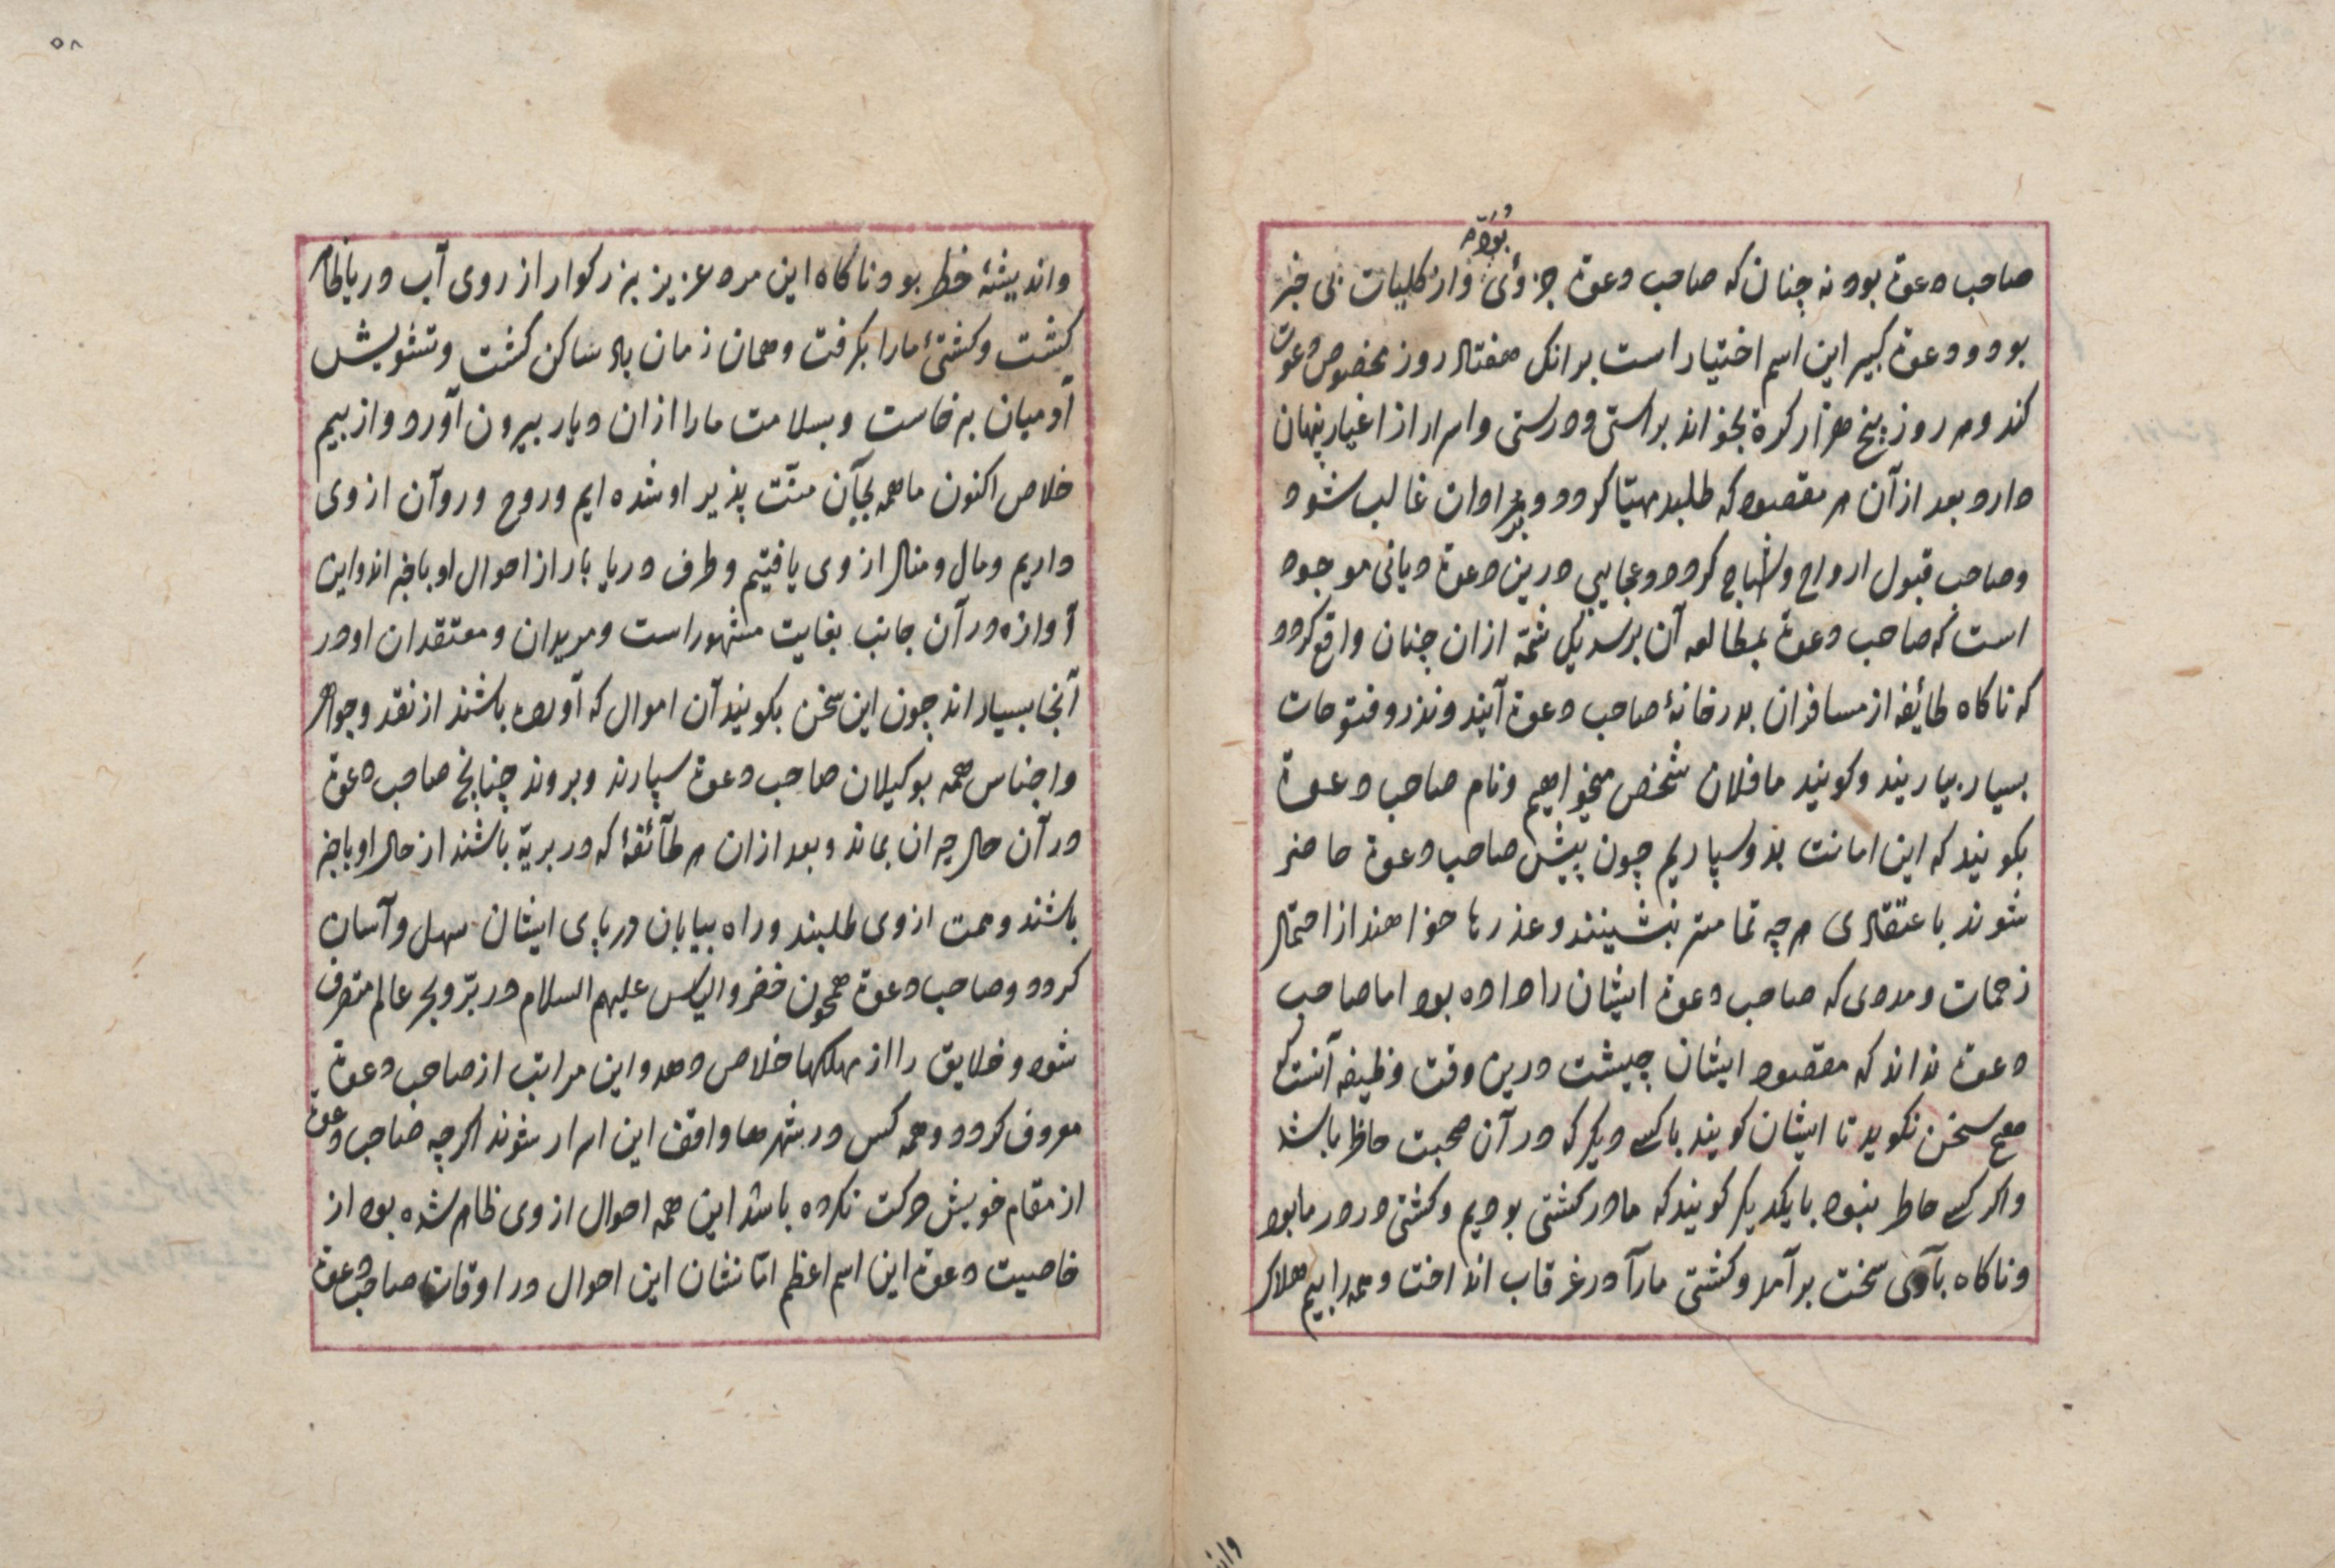 صاحب دعوة بود نه چنان که صاحب دعوة جزوئی بوده و از کلیات بی خبر
بود و دعوة کبیر این اسم اختیار است برانک هفتاد روز مخصوص دعوت
کند و هر روز پنج هزار کرة بخواند براستی و درستی و اسرار از اغیار پنهان
دارد بعد از آن هر مقصود که طلبد مهیّا کردد و ادان غالب شود
و صاحب قبول ارواح و اشباح کردد و عجایبی درین دعوة دیانی موجود
است که صاحب دعوة بمطالعه آن برسد یکل شمّه ازان چنان واقع کردد
که ناکاه طائیفه از مسافران بدرخانۀ صاحب دعوة آیند و نذر و فتوحات
بسیار بیاریند و کویند ما فلان شخص میخواهیم و نام صاحب دعوة
بکویند که این امانت بذو سپاریم چون پیش صاحب دعوة حاضر
شوند باعتقادی هرچه تمامتر بنشینند و عذرها خواهند از احتمال
زحمات و مددی که صاحب دعوة ایشان را داده بود اما صاحب
دعوة نداند که مقصود ایشان چیشت درین وقت وظیفه آنست که
هیچ سخن نکوید تا ایشان کویند با کسے دیکر که در آن صحبت حاظر باشد
و اکر کسے حاطر نبود با یکدیکر کویند که ما در کشتی بودیم و کشتی در دریا بود
و ناکاه بآدی سخت برآمد و کشتی مارآ در غرقاب انداخت و همه را بیم هلاک
واند
۵۸
و اندیشۀ خطر بود ناکاه این مرد عزیز بزرکوار از روی آب دریا ظاهر
کشت و کشتیٔ مارا بکرفت و همان زمان باد ساکن کشت و تشویش
آدمیان برخاست و بسلامت مارا ازان دیار بیرون آورد و از بیم
خلاص اکنون ما همه بجآن منّت پذیر او شده ایم و روح و روآن از وی
داریم و مال و منال از وی یافتیم و طرف دریا بار از احوال او باخبر اند و این
آوازه در آن جانب بغایت مشهور است و مریدان و معتقدان او در
آنجا بسیار اند چون این سخن بکویند آن اموال که آورده باشند از نقد و جواهر
و اجناس همه بوکیلان صاحب دعوة سپارند و بروند چنانچ صاحب دعوة
در آن حال حیران بماند و بعد ازان هر طآئفۀ که در بریّه باشند از حال او باخبر
باشند و همت از وی طلبند و راه بیابان در پای ایشان سهل و آسان
کردد و صاحب دعوة همچون خضر و الیاس علیهم السلام در برّ و بحر عالم متصرف
شود و خلایق را از مهلکها خلاص دهد و این مراتب از صاحب دعوة
معروف کردد و همه کس در شهرها واقف این اسرار شوند اکرچه صاحب دعوة
از مقام خویش حرکت نکرده باشد این همه احوال از وی ظاهر شده بود از
خاصیت دعوة این اسم اعظم امّا نشان این احوال در اوقات صاحب دعوة